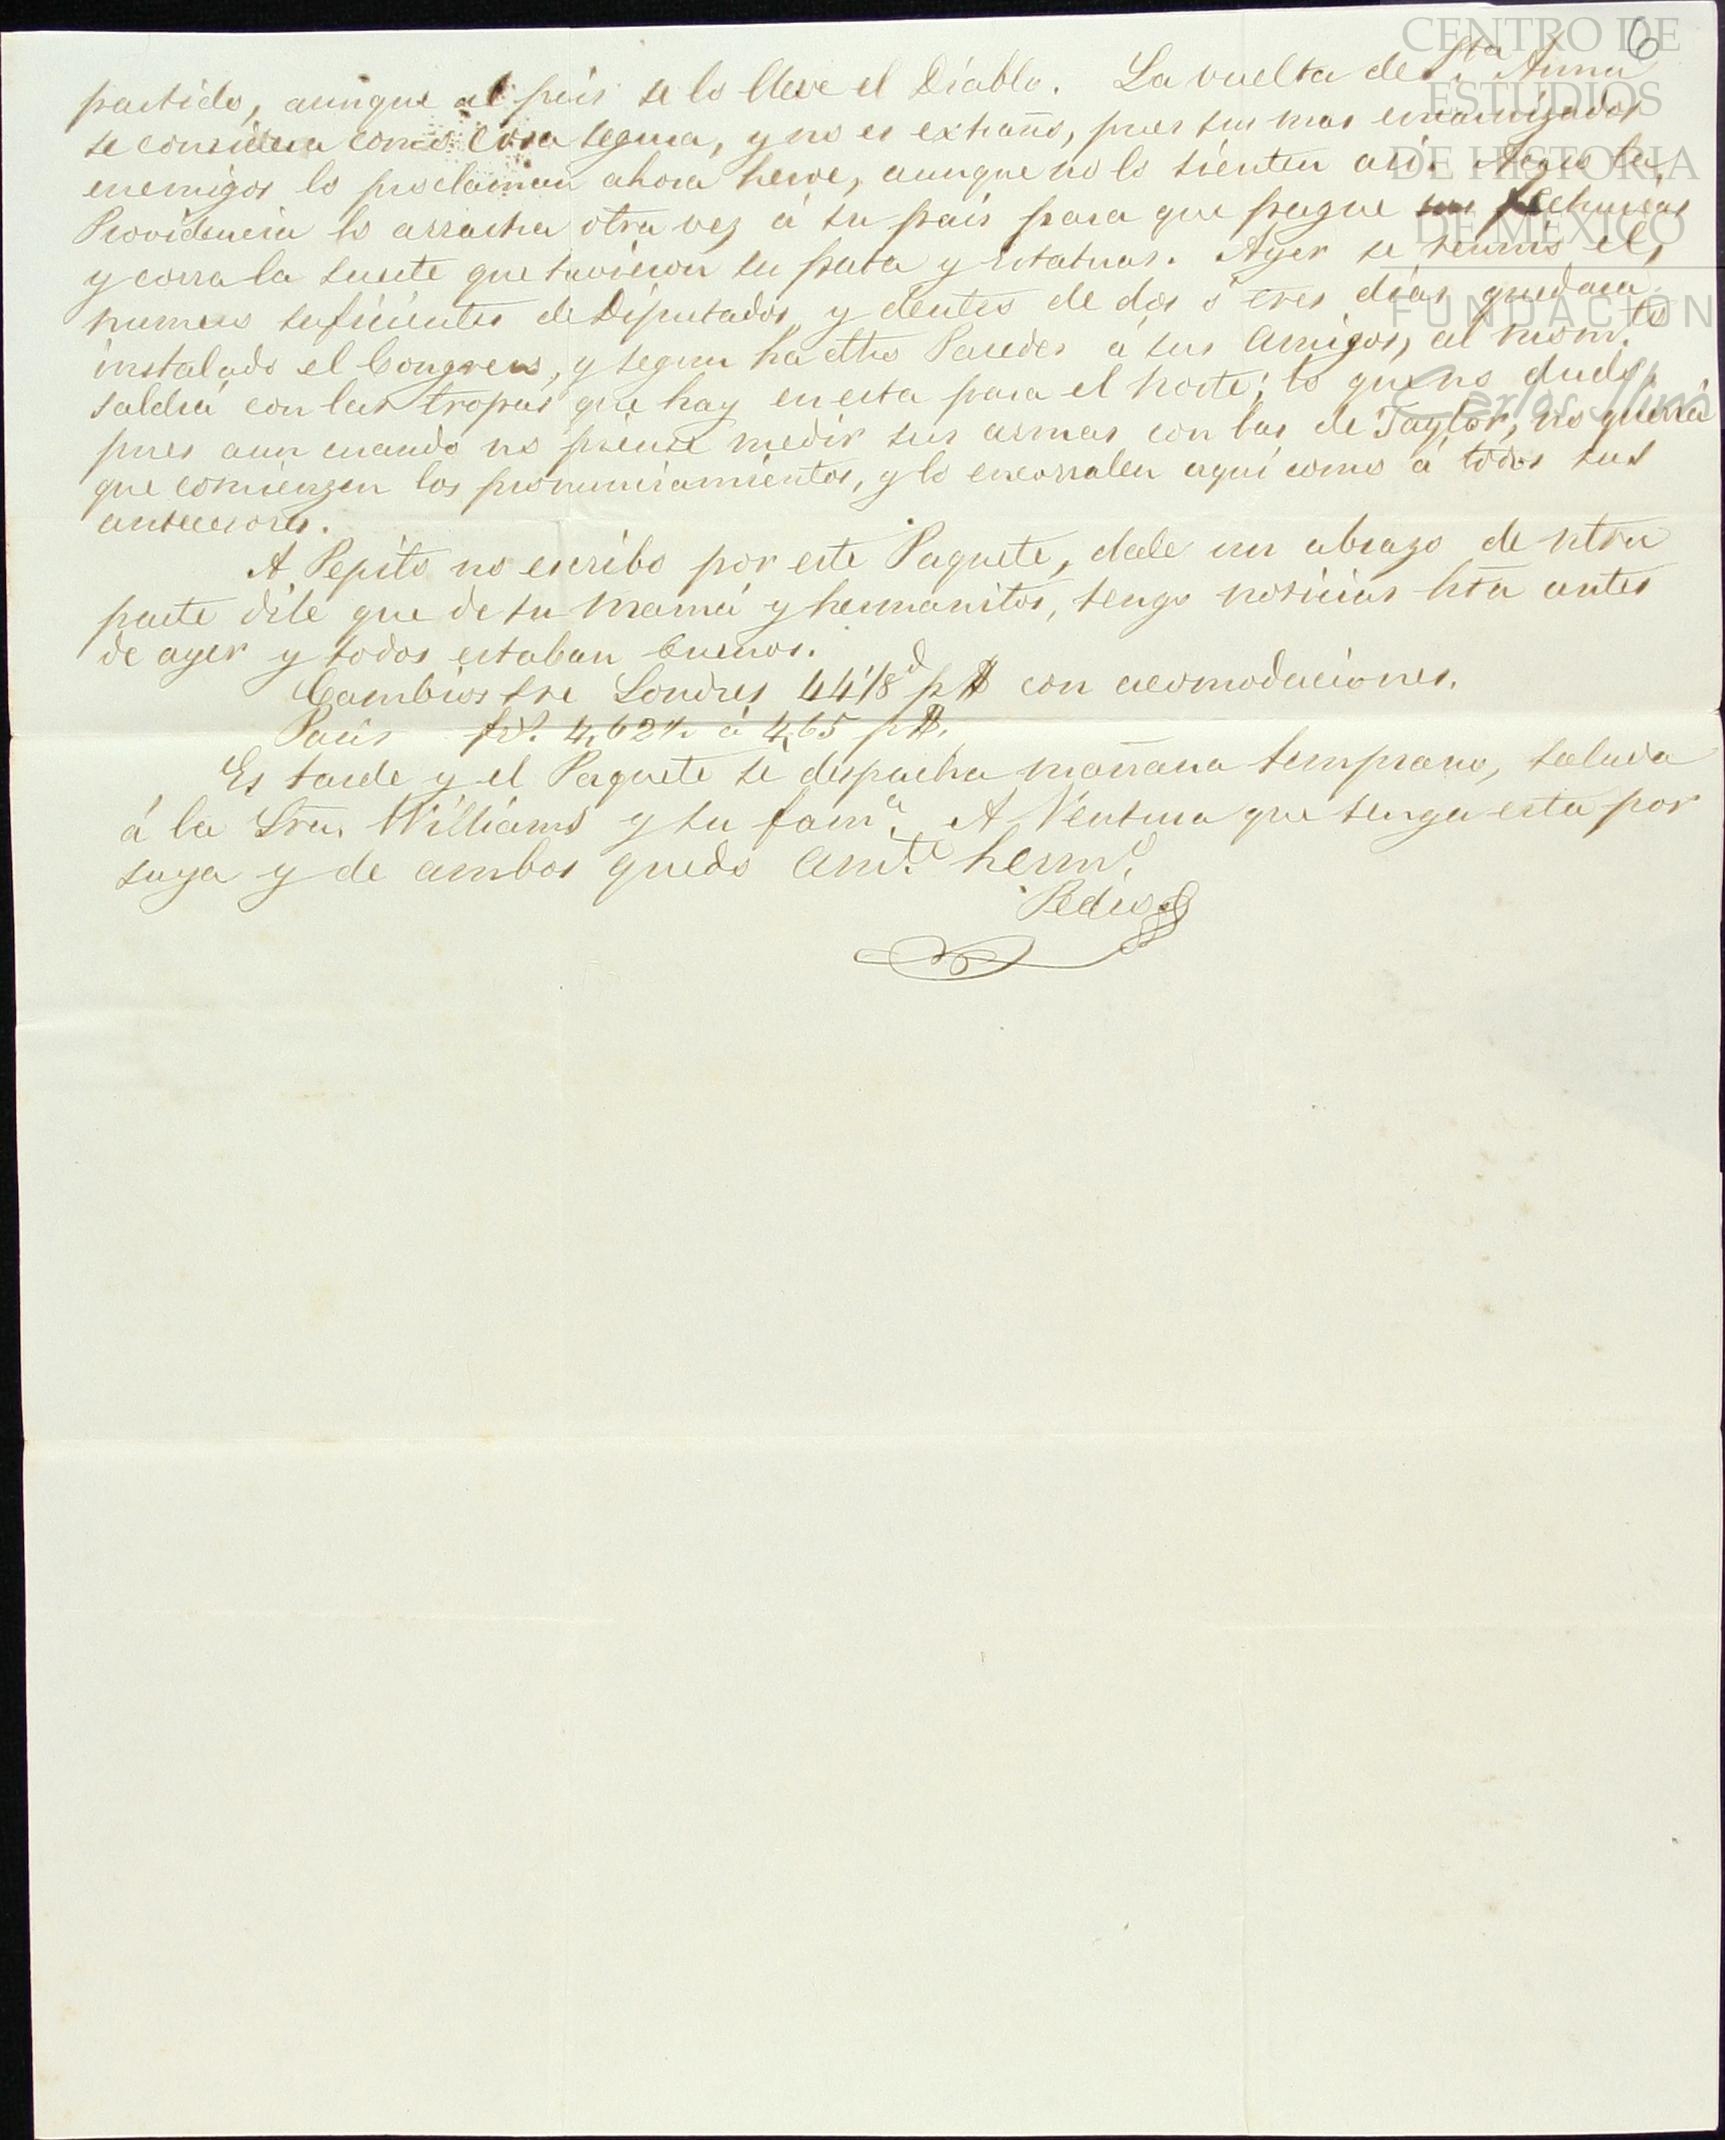 6
CENTRO DE
ESTUDIOS
DE HISTORIA
DE MÉXICO
FUNDACIÓN
Carlos Slim
partido, aunque al pais se lo lleve el Diablo. La vuelta de Sta Anna
se considera como cosa segura, y no es extraño, pues sus mas encarnizados
enemigos lo proclaman ahora heroe, aunque no lo sienten asi. la
Providencia lo arrastra otra vez á su pais para que pague sus fechurias
y corra la suerte que tuvieron su pata y estatuas. Ayer se reunió el
numero suficiente de Diputados y dentro de dos ó tres dias quedará
instalado el Congreso, y segun ha dho Paredes á sus amigos, al mom.to
saldrá con las tropas que hay en esta para el norte; lo que no dudo,
pues aun cuando no piense medir sus armas con las de Taylor, no querrá
que comienzen los pronunciamientos, y lo encorralen aqui como á todos sus
antecesores.
A Pepito no escribo por este Paquete, dale un abrazo de ntra
parte dile que de su mamá y hermanitos, tengo noticias hta antes
de ayer y todos estaban buenos.
Cambios sre Londres 44 1/8 d p $ con acomodaciones.
Paris f.s 4,62½ á 4,65 p $.
Es tarde y el Paquete se despacha mañana temprano, saluda
á la Sra. Williams y su fam.a A Ventura que tenga esta por
suya y de ambos quedo am.te herm.o
Pedro